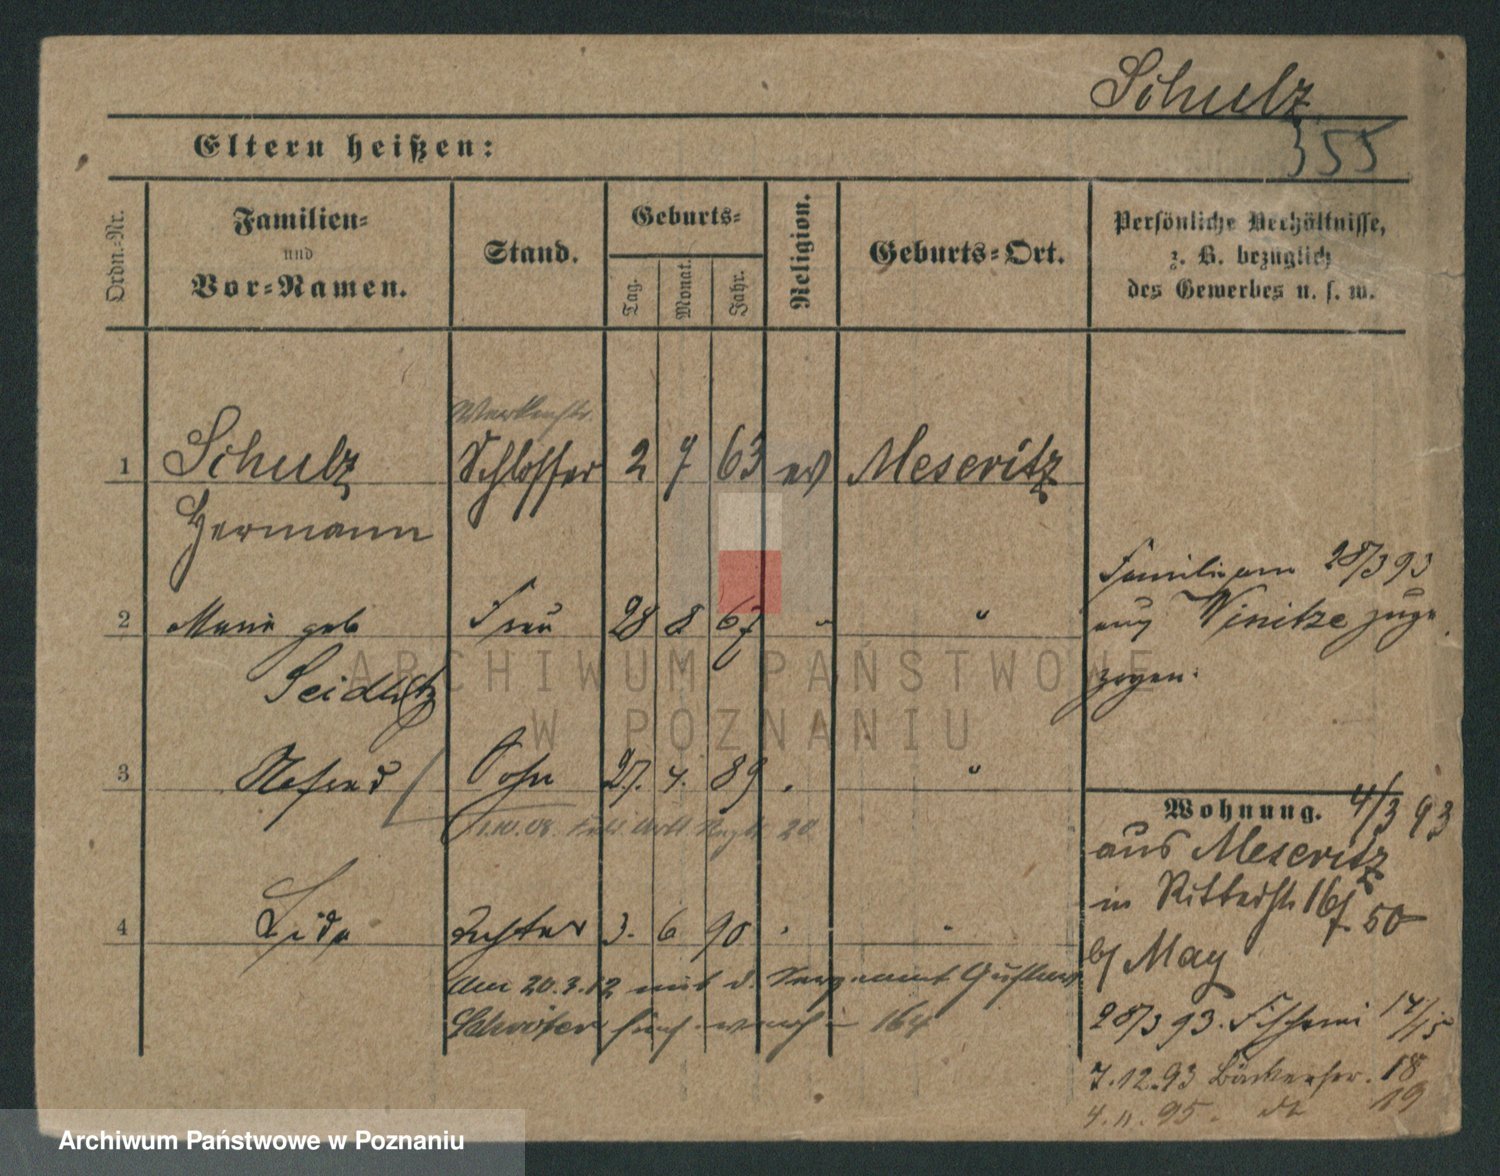 Schulz
355
Eltern heißen:
Ordn.-Nr.
Familien-
und
Vor-Namen.
Stand.
Geburts-
Tag.
Monat.
Jahr.
Religion.
Geburts-Ort.
Persönliche Verhältnisse,
z. B. bezüglich
des Gewerbes u. s. w.
1 Schulz Schlosser 2 7 63 ev Meseritz
Hermann
2 Marie geb Frau 28 8. 67 " "
Seidlitz
Familie am 28/3 93
aus Vinitze zuge
zogen.
3 Sohn 27. 4. 89 "
4 Tochter 3. 6 90
Am 20.3.12 mit d. Sergeant Gustav
164
Wohnung. 4/3 93
aus Meseritz
in Ritterstr 16
50
b/ May
28/3 93. Fischerei 14/15
7.12.93 Bäckerstr. 18
4.11.95. 19
ARCHIWUM PAŃSTWOWE
W POZNANIU
Archiwum Państwowe w Poznaniu